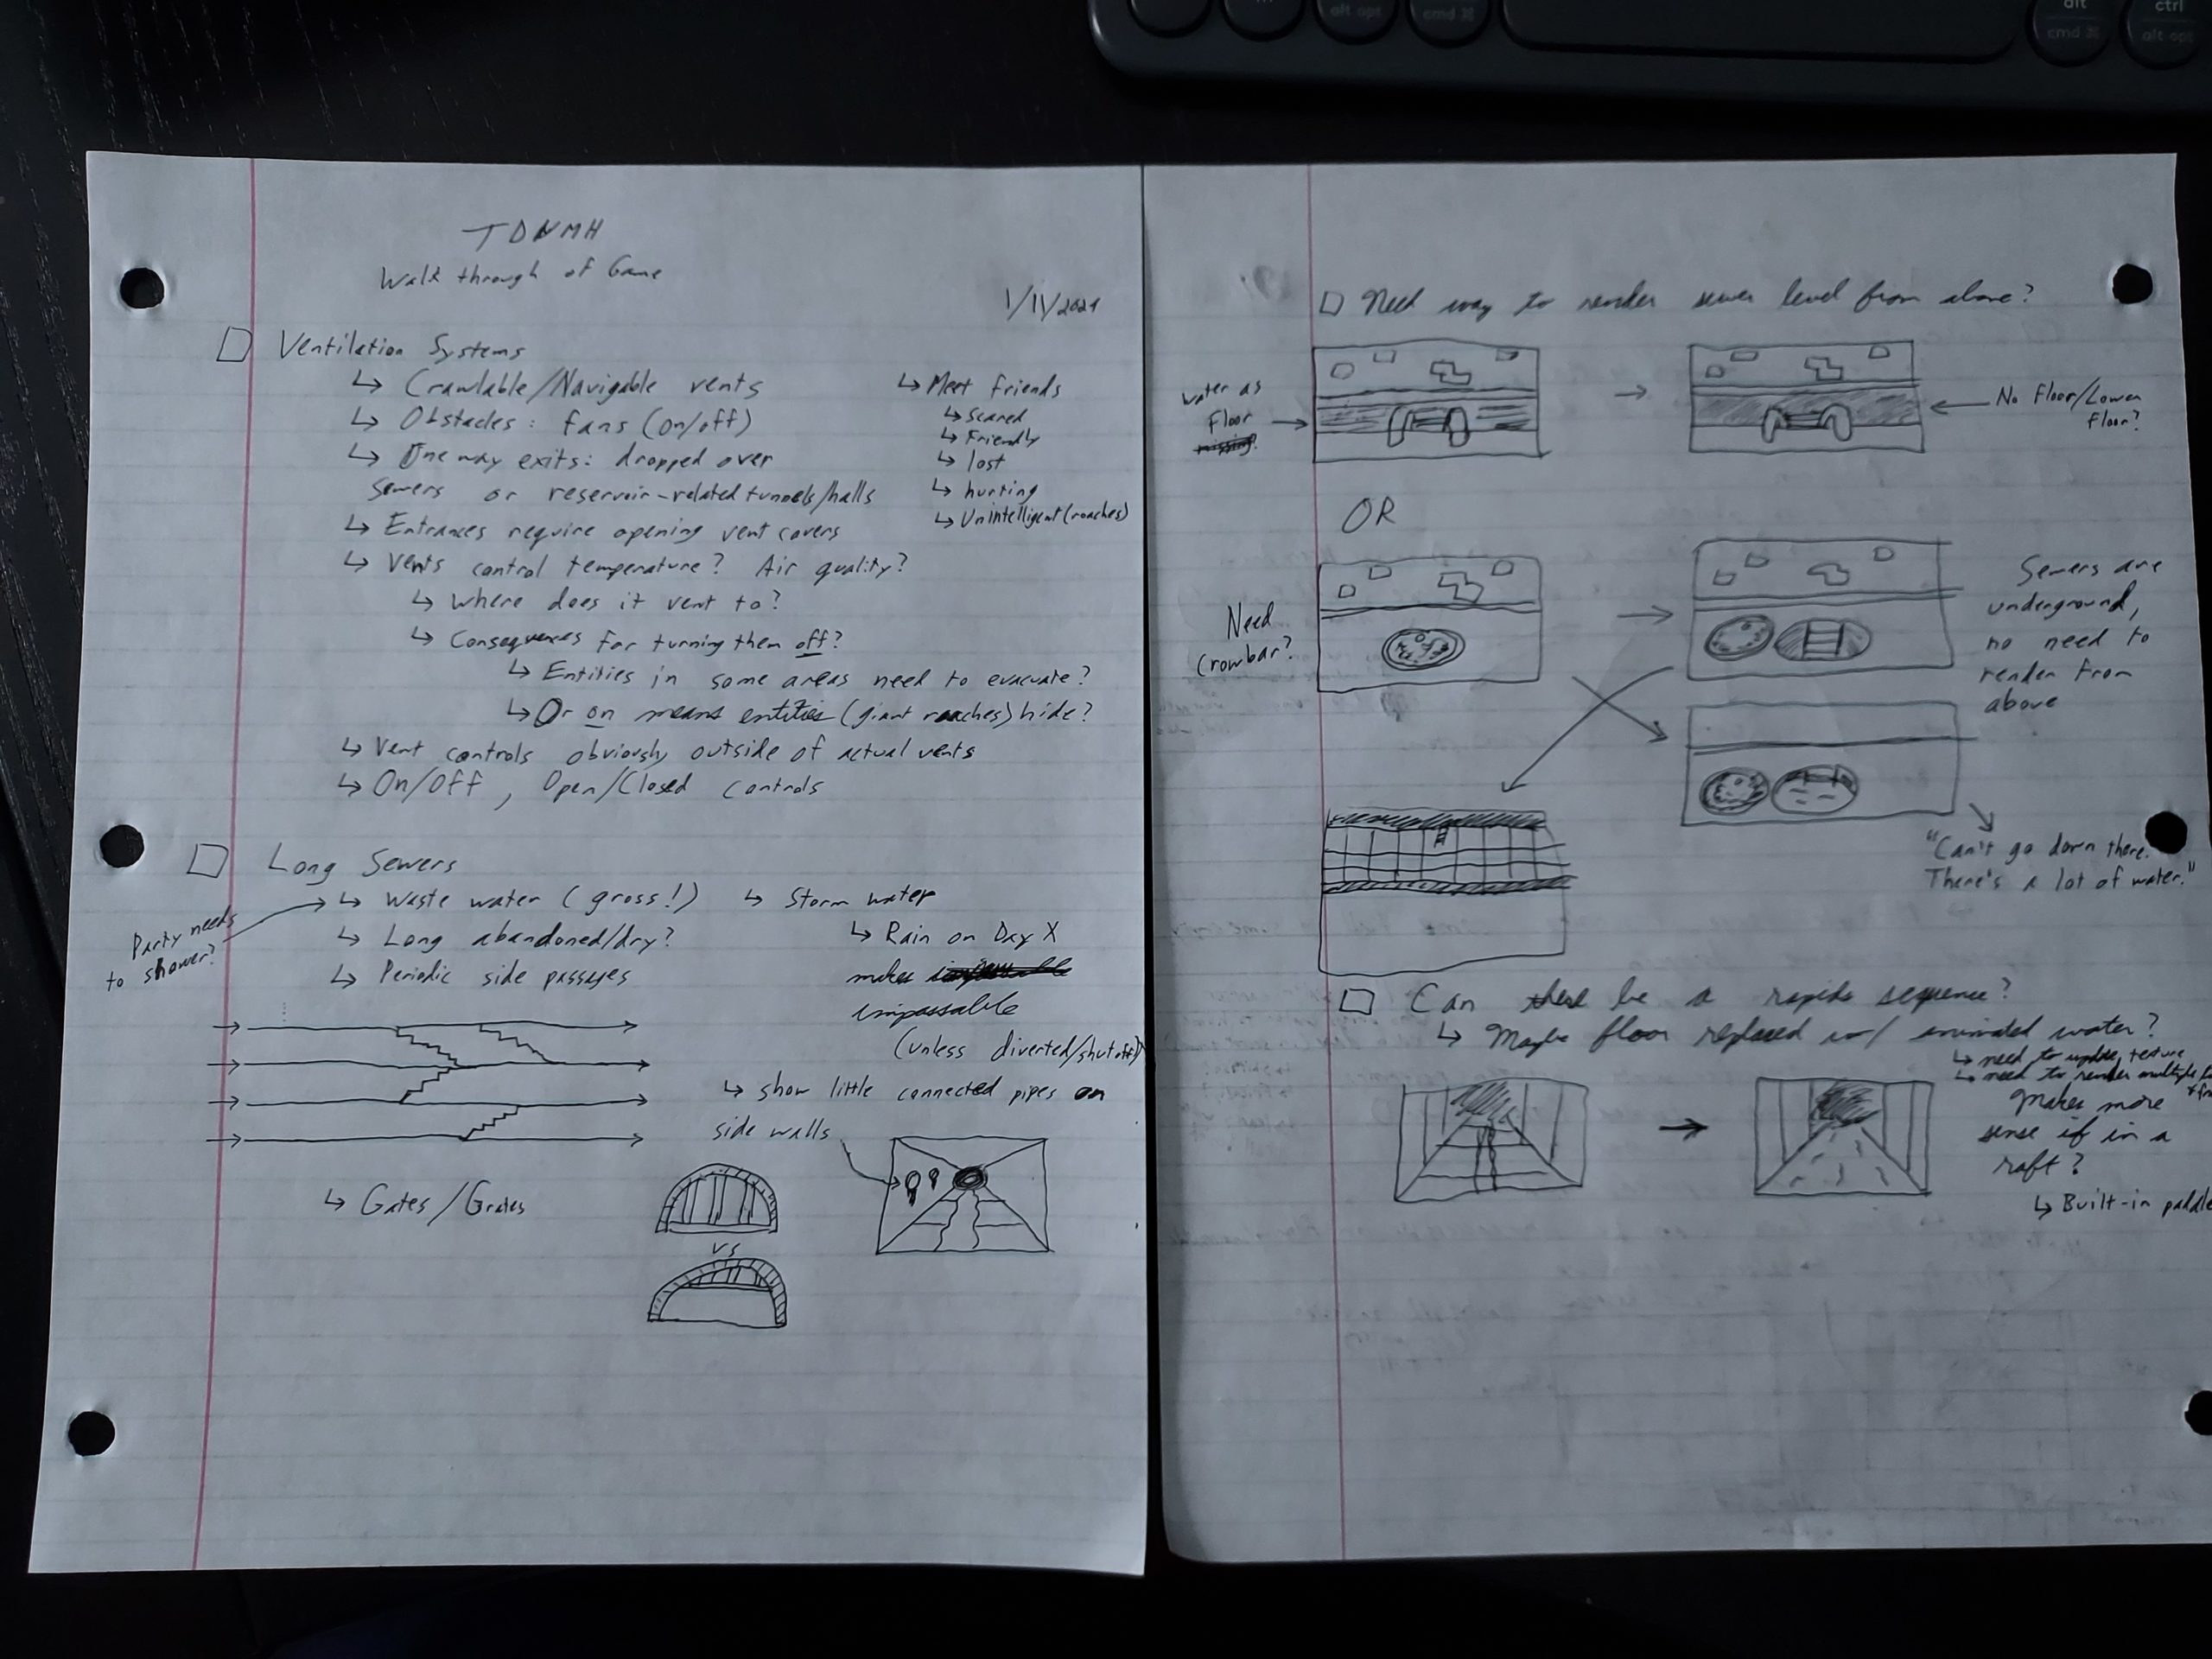 TDNMH
Walk through of Game
1/11/2021
☐ Ventilation Systems
↳ Crawlable/Navigable vents
↳ Obstacles: fans (on/off)
↳ One way exits: dropped over
sewers or reservoir-related tunnels/halls
↳ Entrances require opening vent covers
↳ Vents control temperature? Air quality?
↳ Where does it vent to?
↳ Consequences for turning them off?
↳ Entities in some areas need to evacuate?
↳ Or on means entities (giant roaches) hide?
↳ Vent controls obviously outside of actual vents
↳ On/Off, Open/Closed controls
↳ Meet friends
↳ Scared
↳ Friendly
↳ lost
↳ hurting
↳ Unintelligent (roaches)
☐ Long Sewers
↳ Waste water (gross!)
Party needs
to shower?
↳ Long abandoned/dry?
↳ Periodic side passages
↳ Storm water
↳ Rain on Day X
makes
impassable
(unless diverted/shutoff)
↳ show little connected pipes on
side walls
↳ Gates/Grates
vs
☐ Need way to render sewer level from above?
water as
floor
missing?
No Floor/Lower
floor?
OR
Need
Crowbar?
Sewers are
underground,
no need to
render from
above
"Can't go down there.
There's a lot of water."
☐ Can there be a rapids sequence?
↳ Maybe floor replaced w/ animated water?
↳ need to update texture
↳ need to render multiple
Makes more
sense if in a
raft?
↳ Built-in paddle